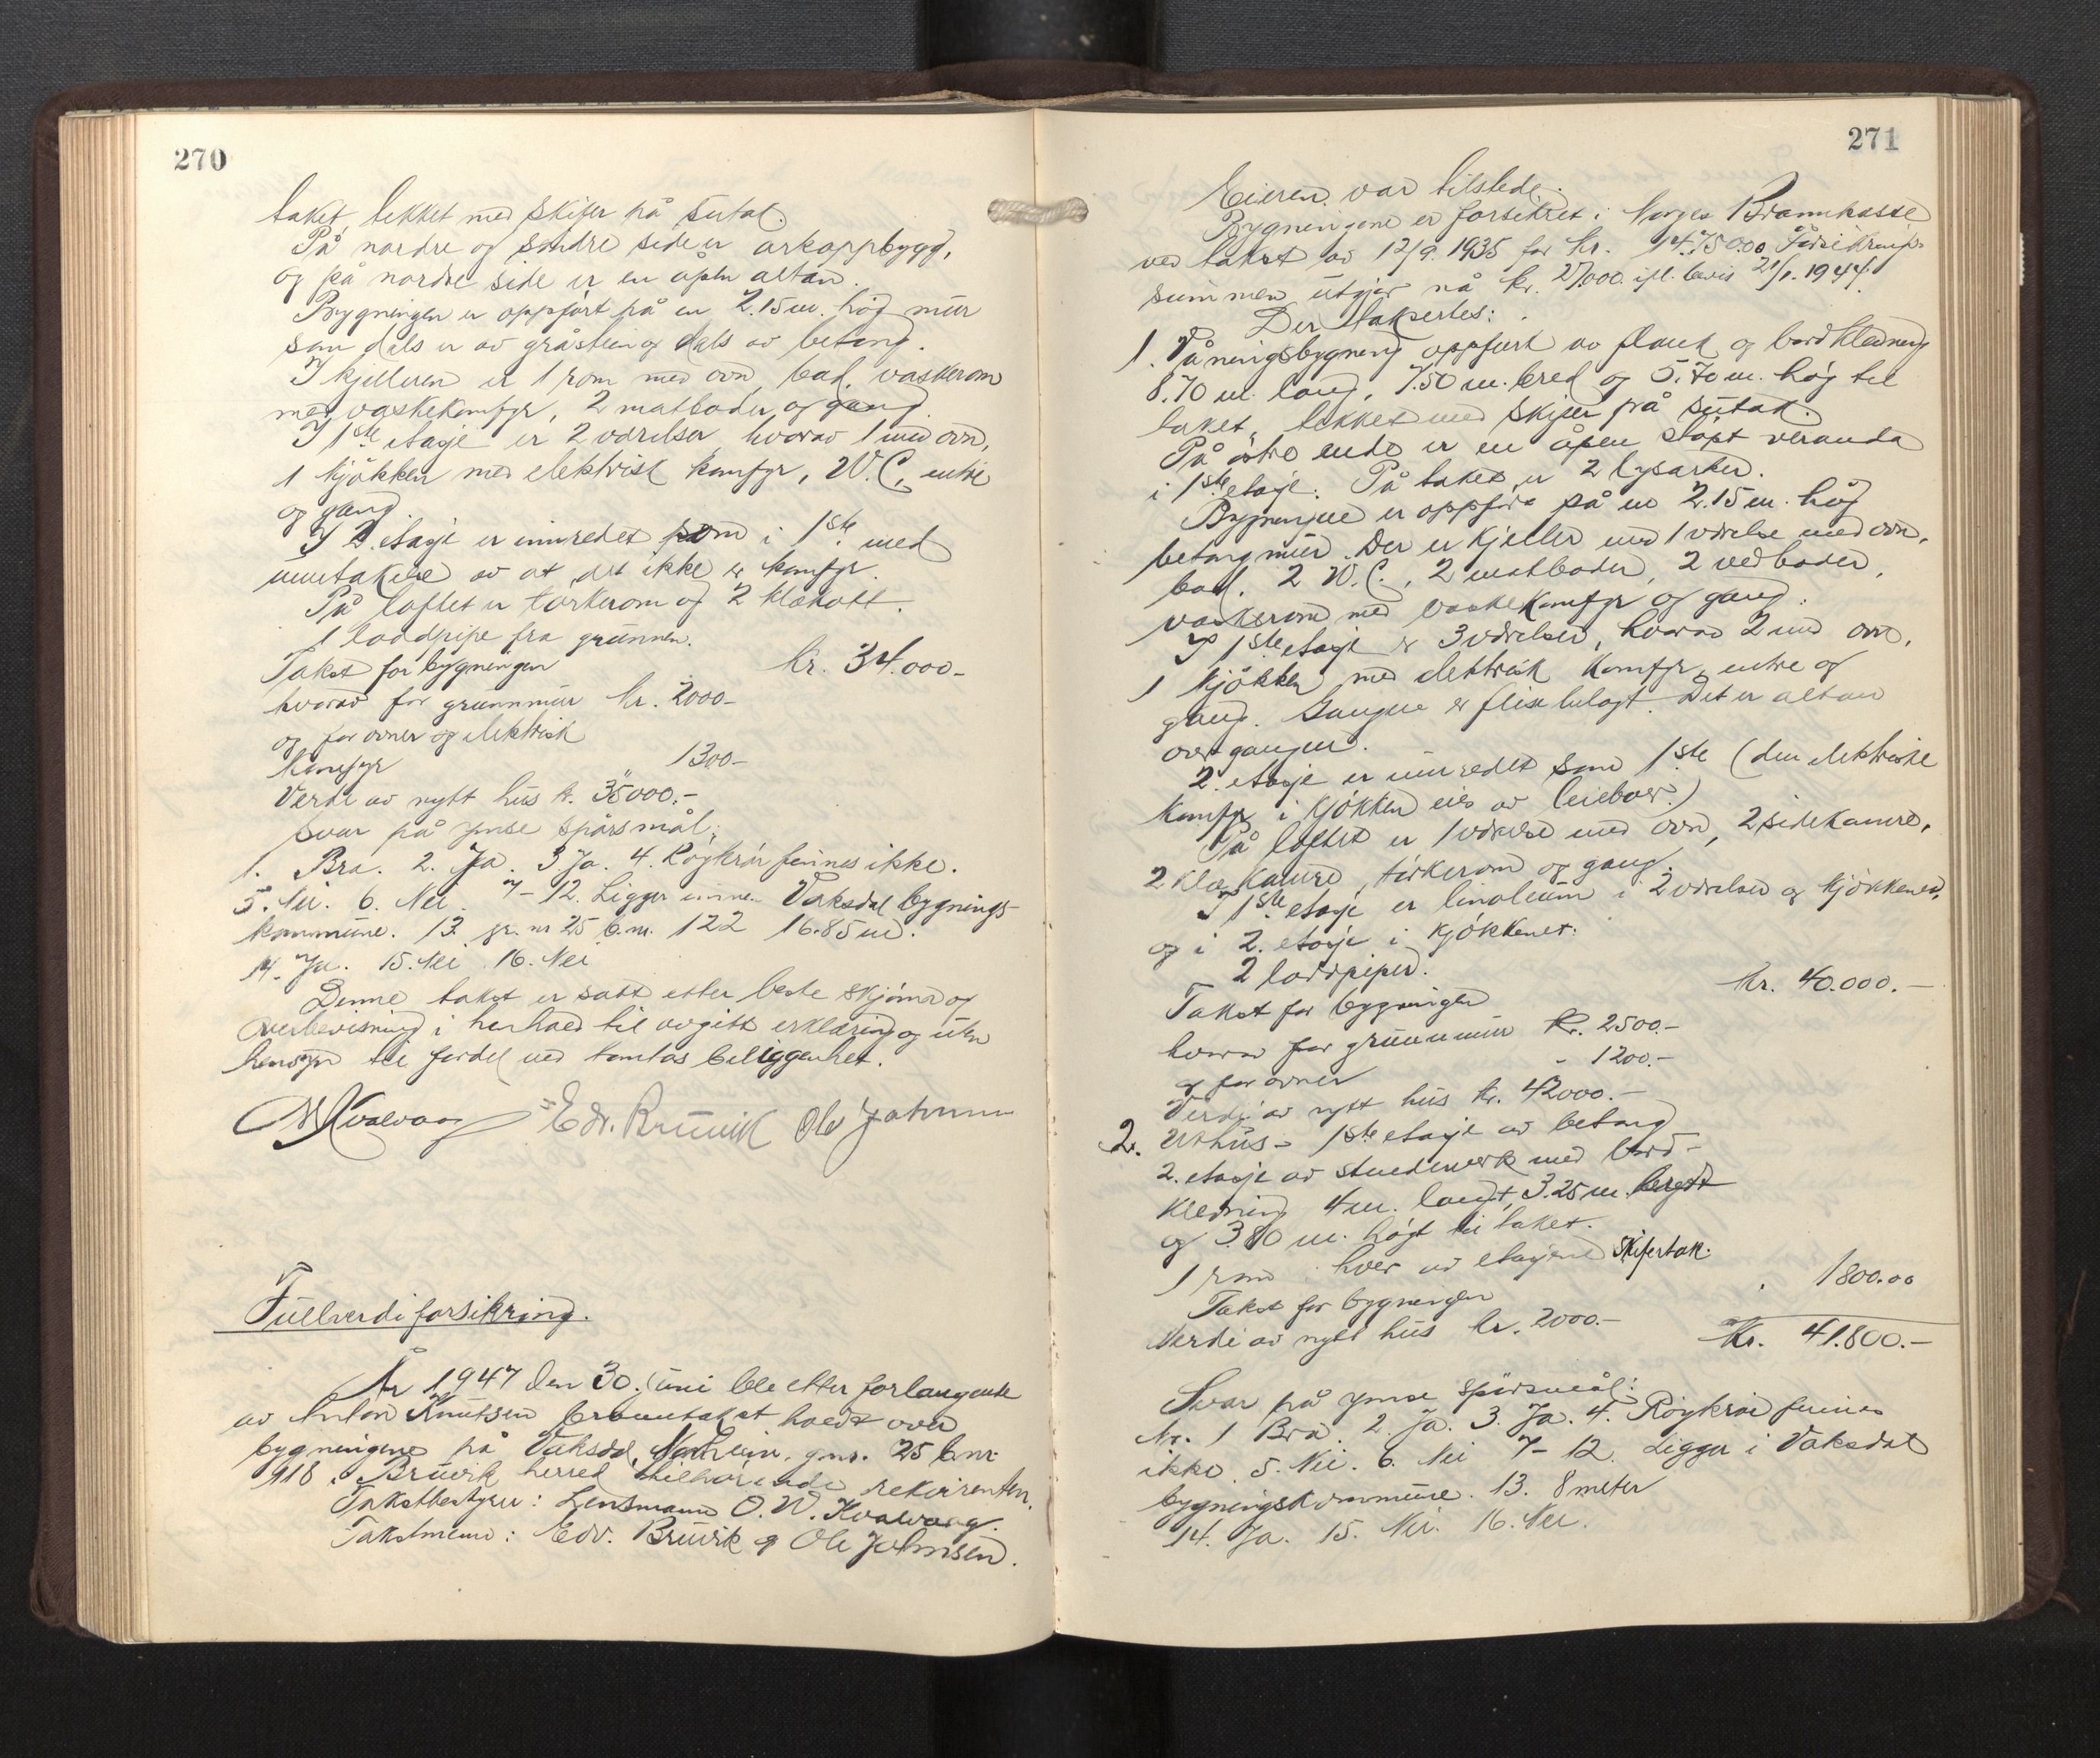 270
taket, tekket med skifer på sutak.
På nordre og søndre side er arkoppbygg,
og på nordre side er en åpen altan.
Bygningen er oppført på en 2.15 m. høg mur
som dels er av gråstein og dels av betong.
I kjelleren er 1 rom med ovn, bad, vaskerom
med vaskekomfyr, 2 matboder og gang.
I 1ste etasje er 2 værelser, hvorav 1 med ovn,
1 kjøkken med elektrisk komfyr, W.C., entre
og gang.
I 2. etasje er innredet som i 1ste med
unntakelse av at det ikke er komfyr.
På loftet er tørkerom og 2 klækott.
1 loddpipe fra grunnen.
Takst for bygningen kr. 34.000-
hvorav for grunnmur kr. 2000-
og for ovner og elektrisk
komfyr " 1300-
Verdi av nytt hus kr. 35000.-
Svar på ymse spørsmål:
1. Bra. 2. Ja. 3. Ja. 4. Røykrør finnes ikke.
5. Nei. 6. Nei. 7-12. Ligger innen Vaksdal bygnings-
kommune. 13. gr. nr 25 b.nr. 122 16.85 m.
14. Ja. 15. Nei. 16. Nei
Denne takst er satt etter beste skjønn og
overbevisning i henhold til avgitt erklæring og uten
hensyn til fordel ved tomtas beliggenhet.
OWKvalvaag Edv. Bruvik Ole Johnsen
Fullverdiforsikring.
År 1947 den 30. juni ble etter forlangende
av Anton Knutsen branntakst holdt over
bygningene på Vaksdal, gnr. 25 bnr
918 i Bruvik herred tilhørende rekvirenten.
Takstbestyrer: Lensmann O. W. Kvalvaag.
Takstmenn: Edv. Bruvik og Ole Johnsen.
271
Eieren var tilstede.
Bygningene er forsikret i Norges Brannkasse
ved takst av 12/9. 1935 for kr. 14.750.00 Forsikrings-
summen utgjør nå kr. 27.000. ifl. bevis 21/1. 1944.
Der takseres:
1. Våningsbygning oppført av plank og bordkledning
8.70 m. lang, 7.50 m. bred og 5.70 m. høg til
taket, tekket med skifer på sutak.
På østre ende er en åpen støpt veranda
i 1ste etasje. På taket er 2 lysarker.
Bygningen er oppført på en 2.15 m. høg
betongmur. Der er kjeller med 1 værelse med ovn,
bad. 2 W.C., 2 matboder, 2 vedboder,
vaskerom med vaskekomfyr og gang.
I 1ste etasje er 3 værelser, hvorav 2 med ovn,
1 kjøkken med elektrisk komfyr, entre og
gang. Gangen er flisebelagt. Det er altan
over gangen.
2. etasje er innredet som 1ste (den elektriske
komfyr i kjøkken eies av leieboer.)
På loftet er 1 værelse med ovn, 2 sidekamre,
2 klækamre, tørkerom og gang.
I 1ste etasje er linoleum i 2 værelser og kjøkkenet,
og i 2. etasje i kjøkkenet.
2 loddpiper.
Takst for bygningen kr. 40.000.-
hvorav for grunnmur kr. 2500.-
og for ovner - 1200.-
Verdi av nytt hus kr. 42000.-
2. Uthus - 1ste etasje av betong
2. etasje av stenderverk med bord-
kledning 4 m. langt, 3.25 m. bredt
og 3.80 m. høgt til taket.
1 rom i hver av etasjene Skifertak.
Takst for bygningen 1800.00
Verdi av nytt hus kr. 2000.-
Kr. 41.800.-
Svar på ymse spørsmål:
Nr. 1 Bra. 2. Ja. 3. Ja. 4. Røykrør finnes
ikke. 5. Nei. 6. Nei 7-12. Ligger i Vaksdal
bygningskommune. 13. 8 meter
14. Ja. 15. Nei. 16. Nei.